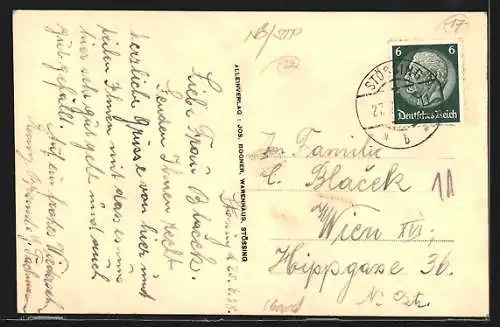 Liebe Frau Blaček.
Senden Ihnen recht
herzliche Grüsse von hier und
teilen Ihnen mit das es uns
hier sehr gut geht und auch
gut gefällt.
Auf ein frohes Wiedersehen
ALLEINVERLAG: JOS. BOGNER, WARENHAUS, STÖSSING
NB/STP
17
6 6
Deutsches Reich
STÖSSING
27.
b
Familie
Blaček
11
Wien XVI.,
Hippgasse 36.
N. Öst.